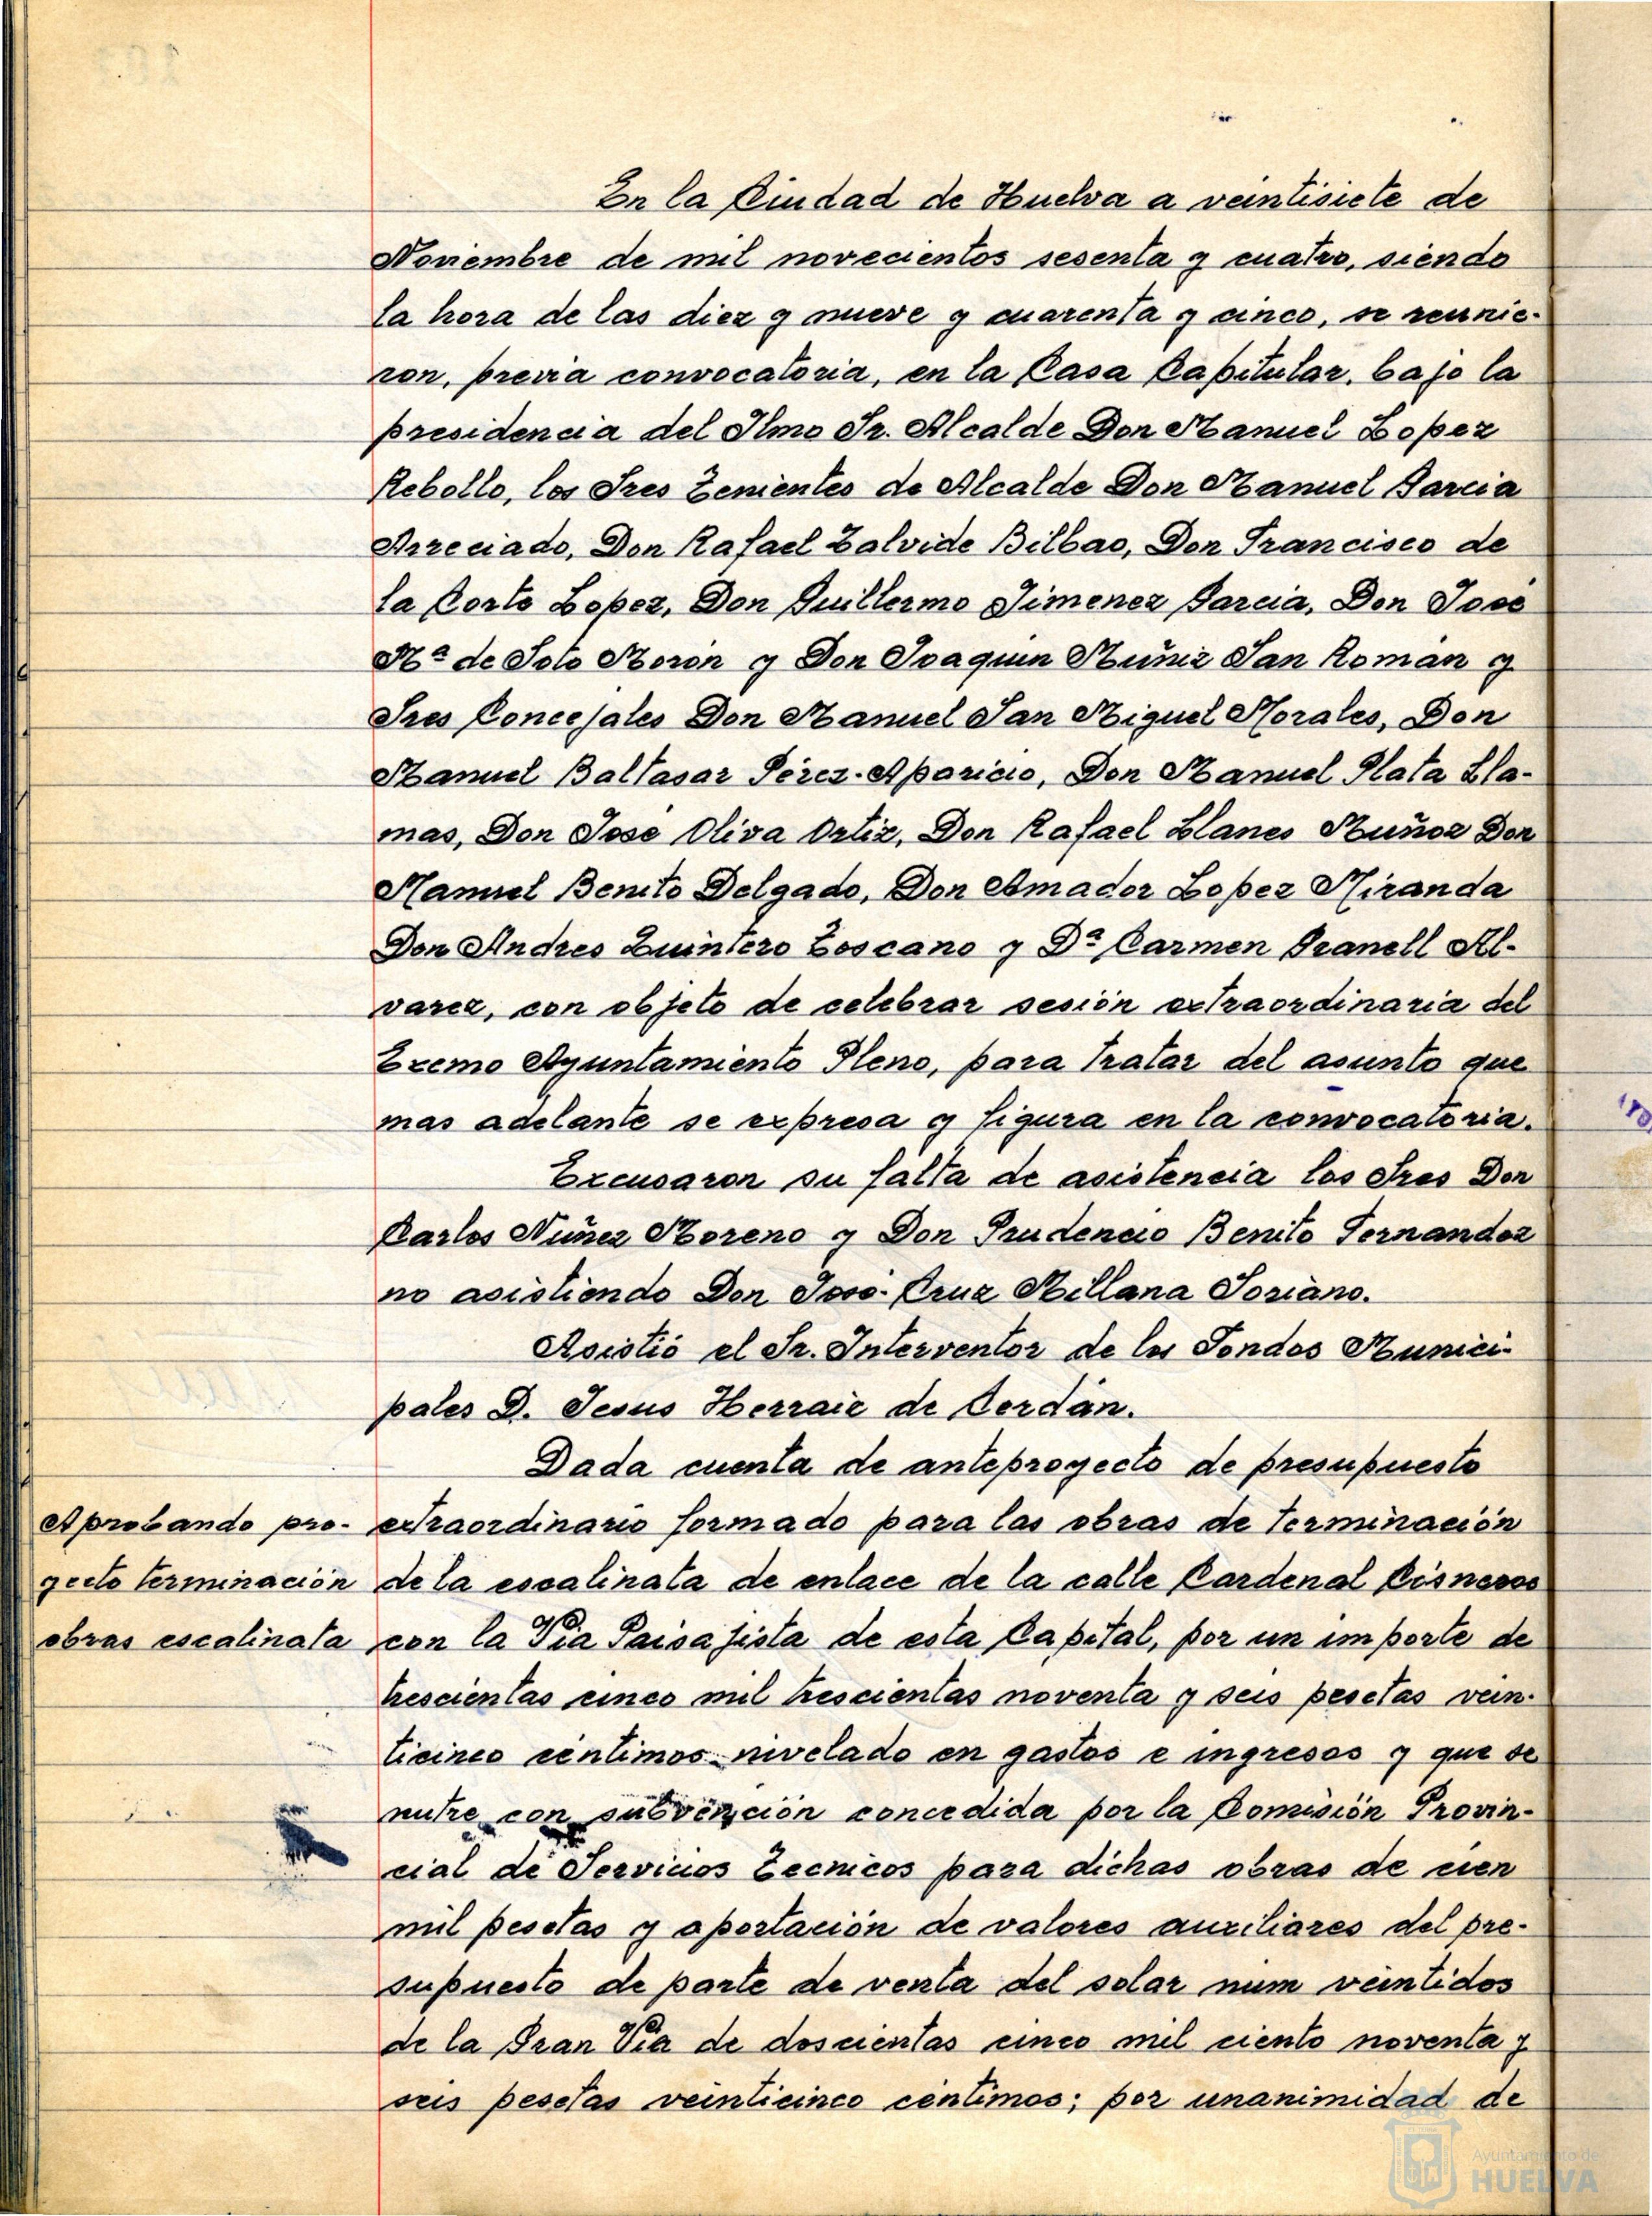 En la Ciudad de Huelva a veintisiete de
Noviembre de mil novecientos sesenta y cuatro, siendo
la hora de las diez y nueve y cuarenta y cinco, se reunie-
ron, previa convocatoria, en la Casa Capitular, bajo la
presidencia del Ilmo Sr. Alcalde Don Manuel Lopez
Rebollo, los Sres Tenientes de Alcalde Don Manuel Garcia
Arreciado, Don Rafael Zalvide Bilbao, Don Francisco de
la Corte Lopez, Don Guillermo Jimenez Garcia, Don José
Mª de Soto Morón y Don Joaquin Muñiz San Román y
Sres Concejales Don Manuel San Miguel Morales, Don
Manuel Baltasar Pérez-Aparicio, Don Manuel Plata Lla-
mas, Don Jose Oliva Ortiz, Don Rafael Llanes Muñoz Don
Manuel Benito Delgado, Don Amador Lopez Miranda
Don Andres Quintero Toscano y Dª Carmen Granell Al-
varez, con objeto de celebrar sesión extraordinaria del
Excmo Ayuntamiento Pleno, para tratar del asunto que
mas adelante se expresa y figura en la convocatoria.
Excusaron su falta de asistencia los Sres Don
Carlos Nuñez Moreno y Don Prudencio Benito Fernandez
no asistiendo Don José-Cruz Millana Soriano.
Asistió el Sr. Interventor de los Fondos Munici-
pales D. Jesus Herraiz de Cerdán.
Dada cuenta de anteproyecto de presupuesto
Aprobando pro- extraordinario formado para las obras de terminación
yecto terminación de la escalinata de enlace de la calle Cardenal Cisneros
obras escalinata con la Via Paisajista de esta Capital, por un importe de
trescientas cinco mil trescientas noventa y seis pesetas vein-
ticinco céntimos nivelado en gastos e ingresos y que se
nutre con subvención concedida por la Comisión Provin-
cial de Servicios Tecnicos para dichas obras de cien
mil pesetas y aportación de valores auxiliares del pre-
supuesto de parte de venta del solar num veintidos
de la Gran Via de doscientas cinco mil ciento noventa y
seis pesetas veinticinco céntimos; por unanimidad de
Ayuntamiento de
HUELVA